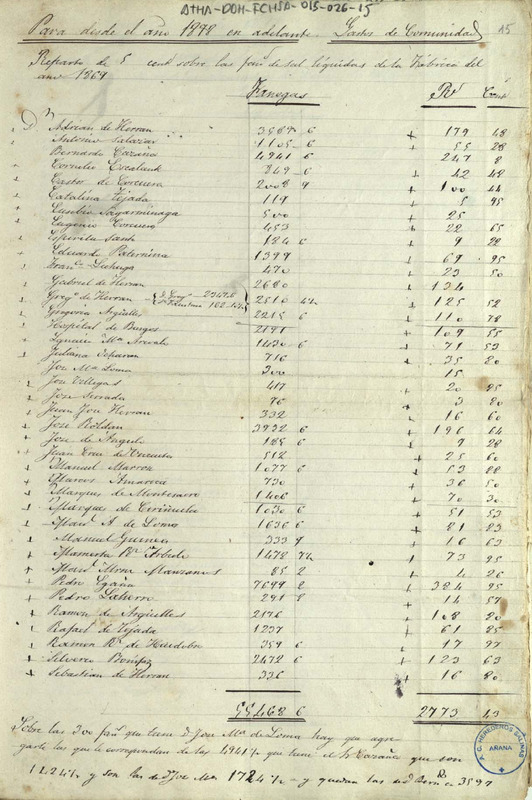 ATHA-DDH-FCHSA-015-026-15
15
Para desde el año 1878 en adelante. Gastos de Comunidad
Reparto de 5 cent sobre las fans de sal líquidas de la Fábrica del
año 1869
Fanegas Rs Cent
Dn Adrian de Herran 3587 6 + 179 48
Antonio Salazar 1105 6 + 55 28
Bernardo Cazaña 4941 6 247 8
Cornelio Escalauk 849 6 + 42 48
Castor de Corcuera 2008 9 + 100 44
Catalina Tejada 119 + 5 95
Eusebio Sagarminaga 500 + 25
Eugenio Corcuera 453 + 22 65
Espiritu Santo 184 6 + 9 22
Eduardo Paternina 1399 + 69 95
Franco Luzuriaga 470 + 23 50
Gabriel de Herran 2680 + 134
Grego de Herran 2510 + 125 52
Gregoria Argüelles 2215 6 + 110 78
Hospital de Burgos 2191 + 109 55
Ignacio Ma Arevalo 1430 6 + 71 53
Juliana Ocharan 716 + 35 80
Jose Ma Loma 300 15
Jose Villegas 417 + 20 85
Jose Serrada 76 3 80
Juan Jose Herran 332 + 16 60
Jose Roldan 3932 6 + 196 64
Jose de Angulo 185 6 + 9 28
Juan Cruz de 512 + 25 60
Manuel Marroz 1077 6 + 53 88
Marcos Amarica 730 + 36 50
Marques de Montesacro 1406 + 70 30
Marques de Ciriñuela 1030 6 + 51 53
A de Loma 1636 6 + 81 83
Manuel Guinea 333 9 + 16 63
Mamerta Rz Arbulo 1478 + 73 95
Manzanos 85 2 + 4 26
Pedro Egaña 7699 2 + 384 95
Pedro Latierro 291 8 + 14 57
Ramon de Argüelles 2176 + 108 80
Rafael de Tejada 1237 + 61 85
Ramon Rz de Huidobro 359 6 + 17 97
Silverio Bonifaz 2472 6 + 123 63
Sebastian de Herran 336 + 16 80
55468 6 2773 43
Sobre las 300 fans que tiene D Jose Ma de Loma hay que agre
garle las que le corresponden de las 4941 ½ que tiene el Sr Cazaña que son
y son las de Jose Ma y quedan las de Bern 3597
A.C. HEREDEROS SALINAS
ARANA